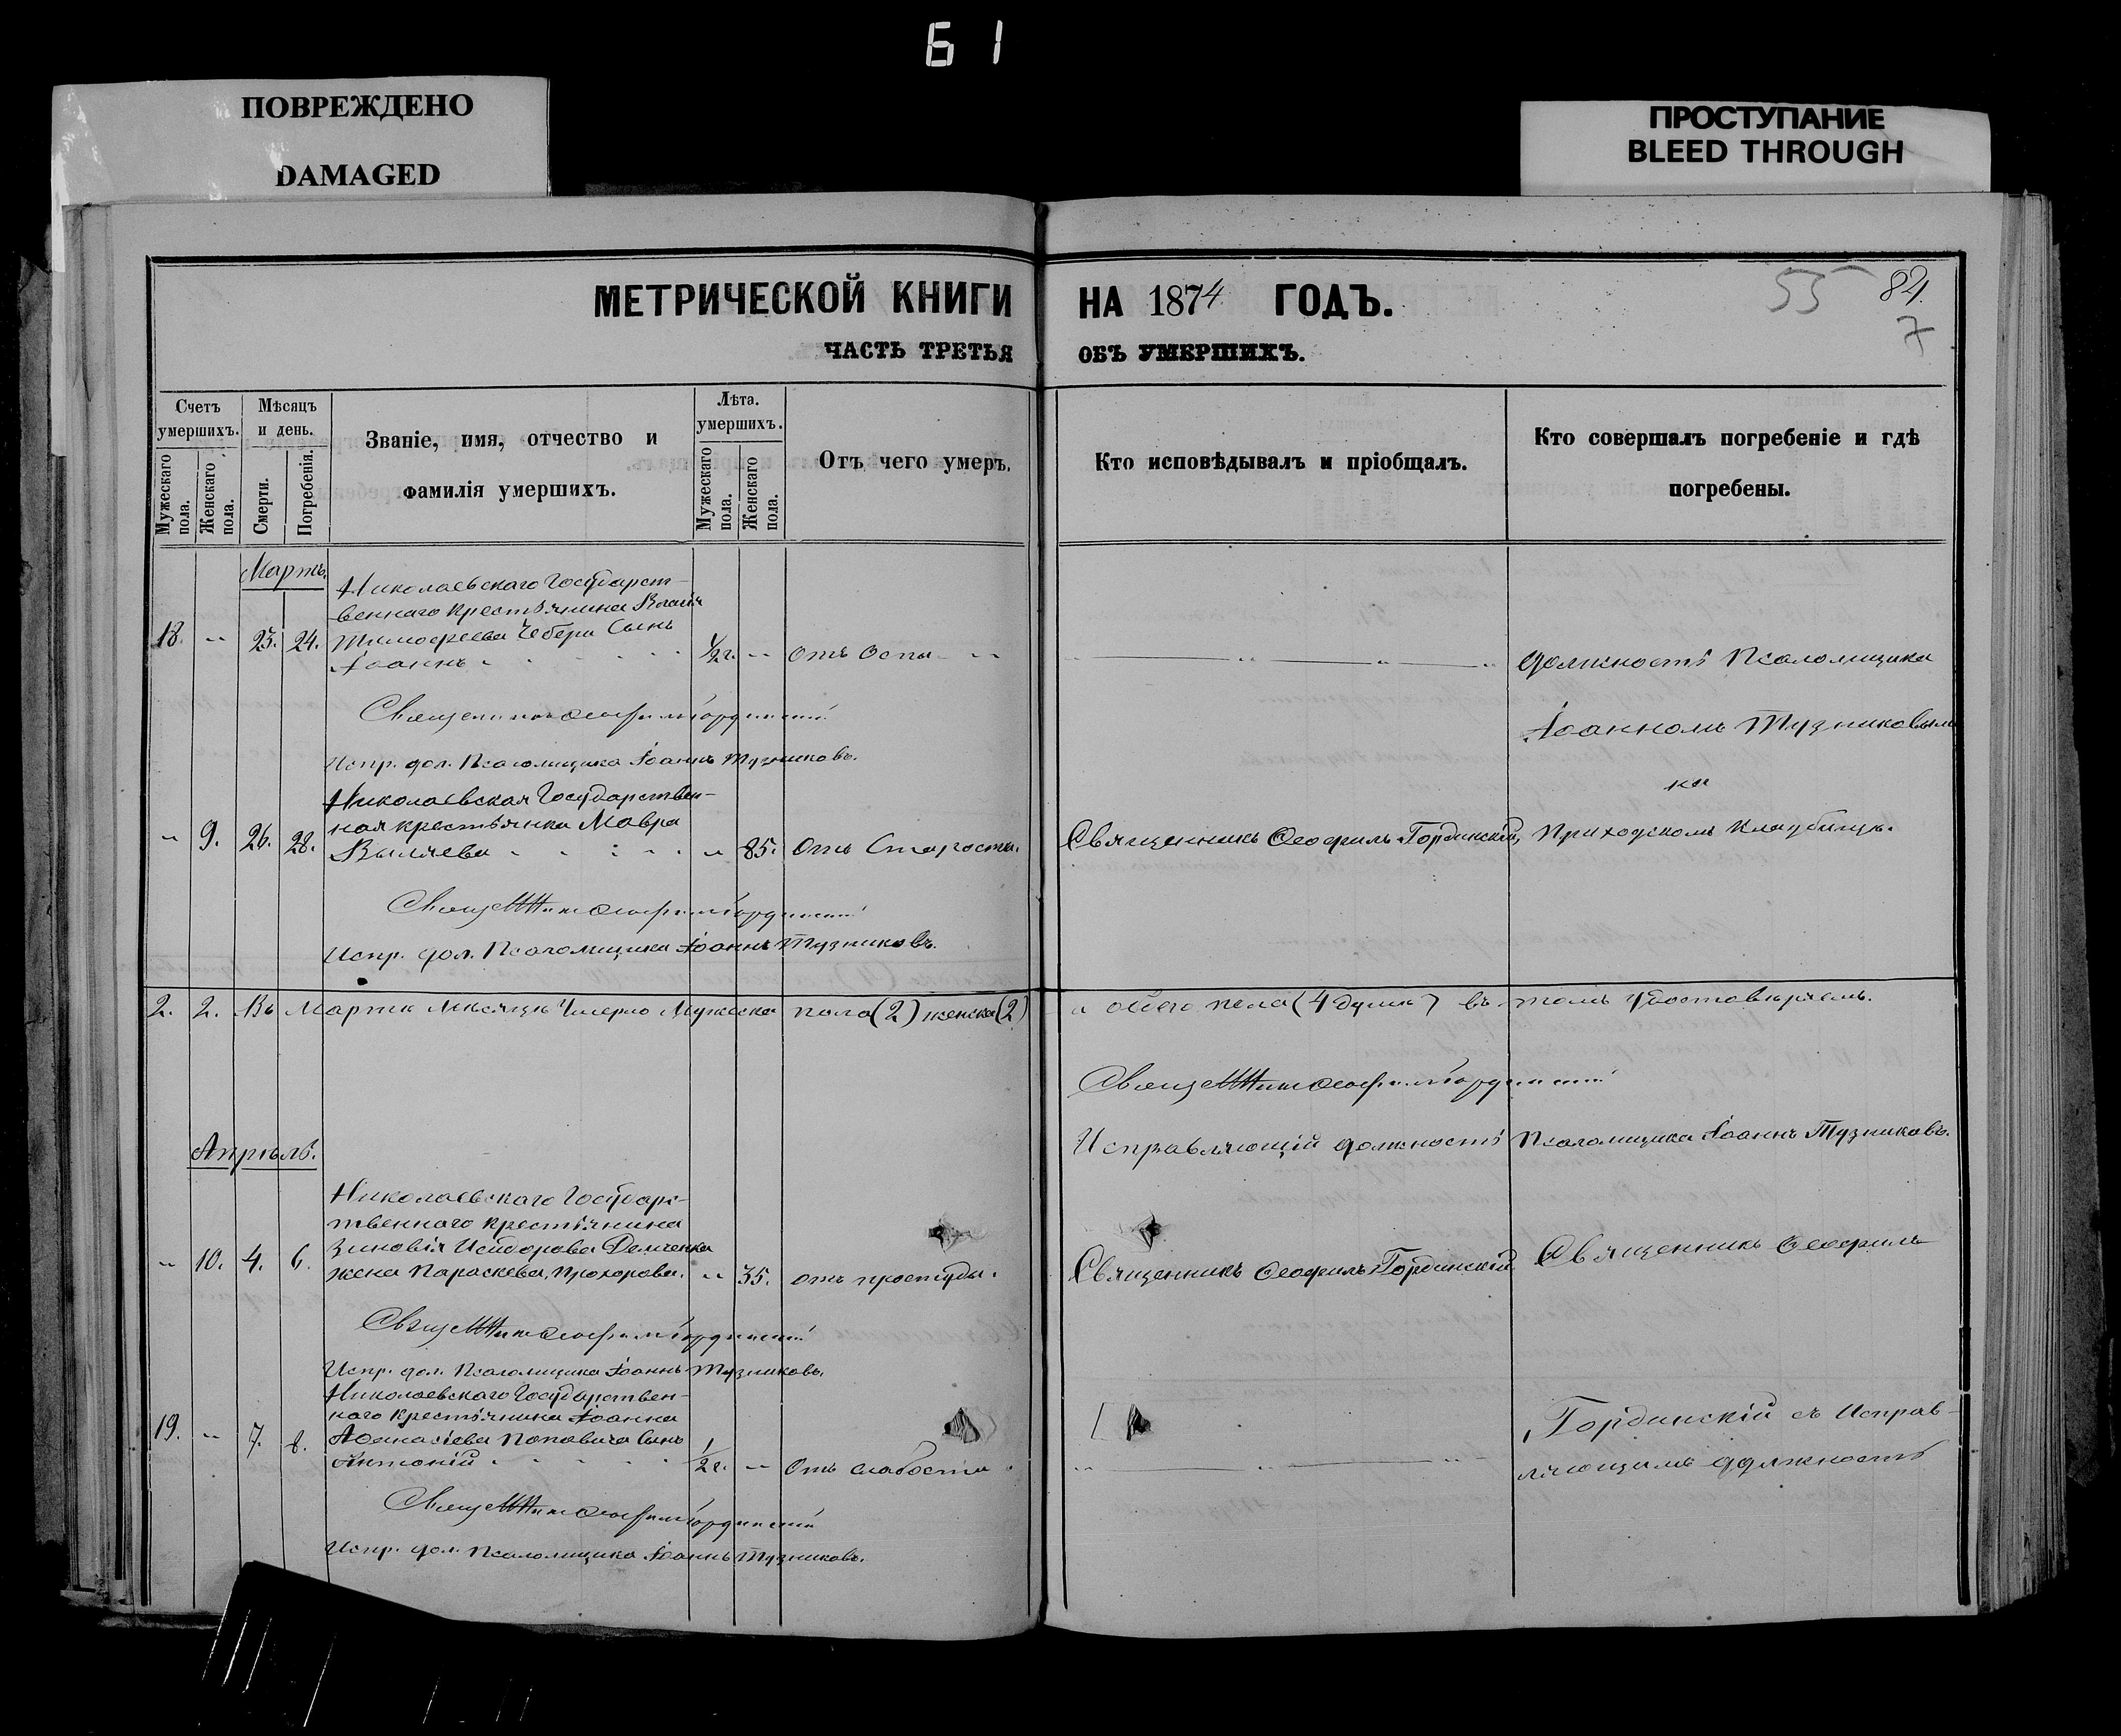 Б 1
ПОВРЕЖДЕНО
DAMAGED
ПРОСТУПАНИЕ
BLEED THROUGH
МЕТРИЧЕСКОЙ КНИГИ НА 1874 ГОДЪ.
55 84.
7
ЧАСТЬ ТРЕТЬЯ ОБЪ УМЕРШИХЪ.
Счетъ умершихъ.
Мужескаго пола.
Женскаго пола.
Мѣсяцъ и день.
Смерти.
Погребенія.
Званіе, имя, отчество и
фамилія умершихъ.
Лѣта. умершихъ.
Мужескаго пола.
Женскаго пола.
Отъ чего умеръ.
Кто исповѣдывалъ и пріобщалъ.
Кто совершалъ погребеніе и гдѣ
погребены.
Мартъ.
Николаевскаго Государст-
веннаго крестьянина
18. 23. 24. Тимофеева Чебери Сынъ
Іоаннъ 1/2 г. Отъ Оспы должность Псаломщика
Іоанномъ Тузниковымъ
на
Священникъ Ѳеофилъ Гординскій
Испр. дол. Псаломщика Іоаннъ Тузниковъ.
Николаевская Государствен-
ная крестьянка Мавра
9. 26. 28. 85. Отъ Старости. Священникъ Ѳеофилъ Гординскій, Приходскомъ Кладбищѣ.
Священникъ Ѳеофилъ Гординскій
Испр. дол. Псаломщика Іоаннъ Тузниковъ.
2. 2. Въ Мартѣ Мѣсяцѣ Умерло Мужеска пола (2) женска (2) и обоего пола (4 души) въ томъ Удостовѣряемъ.
Священникъ Ѳеофилъ Гординскій
Исправляющій должность Псаломщика Іоаннъ Тузниковъ.
Апрѣль.
Николаевскаго Государс-
твеннаго крестьянина
Зиновія Исидорова Демченка
10. 4. 6. жена Параскева Прохорова. 35. отъ простуды. Священникъ Ѳеофилъ Гординскій Священникъ Ѳеофилъ
Священникъ Ѳеофилъ Гординскій
Испр. дол. Псаломщика Іоаннъ Тузниковъ.
Николаевскаго Государствен-
наго крестьянина Іоанна
19. 7. 8. Аѳанасіева Поповича Сынъ
Антоній 1/2 г. Отъ слабости
Гординскій съ Исправ-
ляющимъ должность
Священникъ Ѳеофилъ Гординскій
Испр. дол. Псаломщика Іоаннъ Тузниковъ.